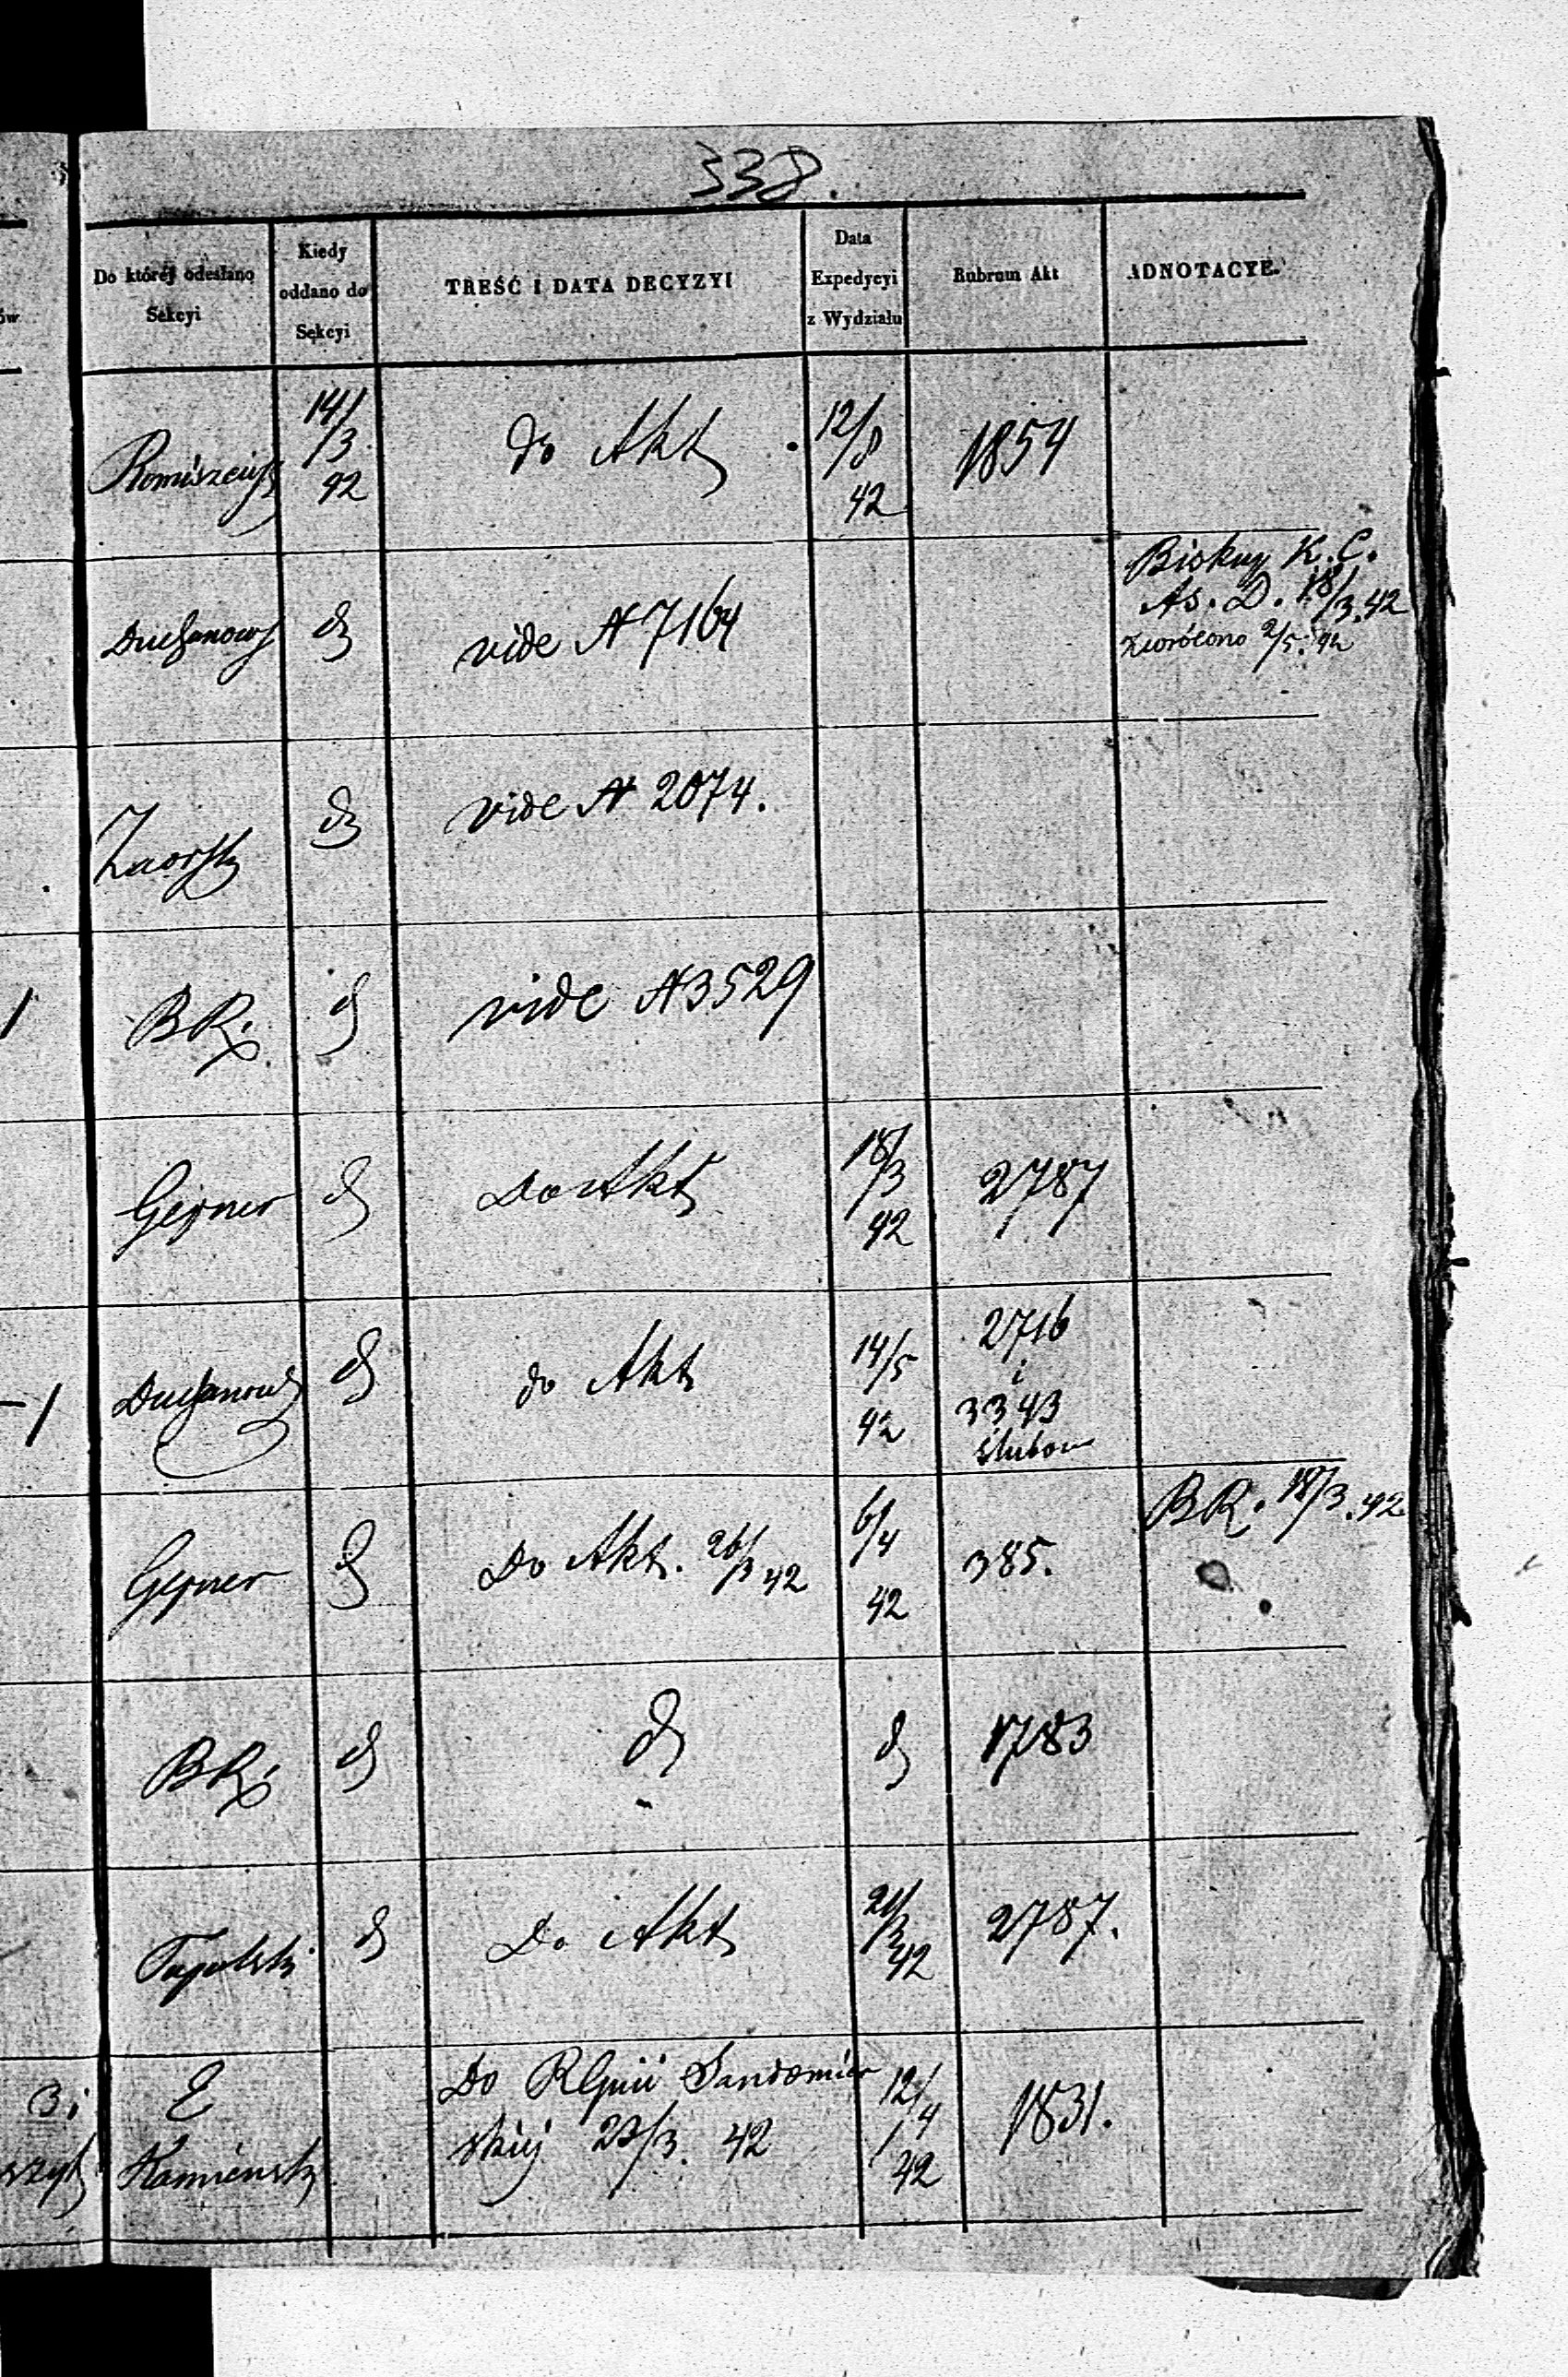 338.
Do której odesłano Sekcyi
Kiedy oddano do Sekcyi
TREŚĆ I DATA DECYZYI
Data Expedycyi z Wydziału
Rubrum Akt
ADNOTACYE.
14/3 42 do Akt 12/8 42 1854
Biskup K. C.
As. D. 18/3.42
zwrócono 2/5. 42
vide N 7164
vide N 2074.
BR. vide N 3529
Gejner Do Akt 18/3 42 2787
2716
i
do Akt 14/5 42 3343
ślubow
BR. 18/3.42
Gejner Do Akt. 26/3 42 6/4 42 385.
BR. 1783
Do Akt 21/3 42 2787.
E Do RGnii Sandomier
Kamiensk skiej 23/3. 42 12/4 42 1831.